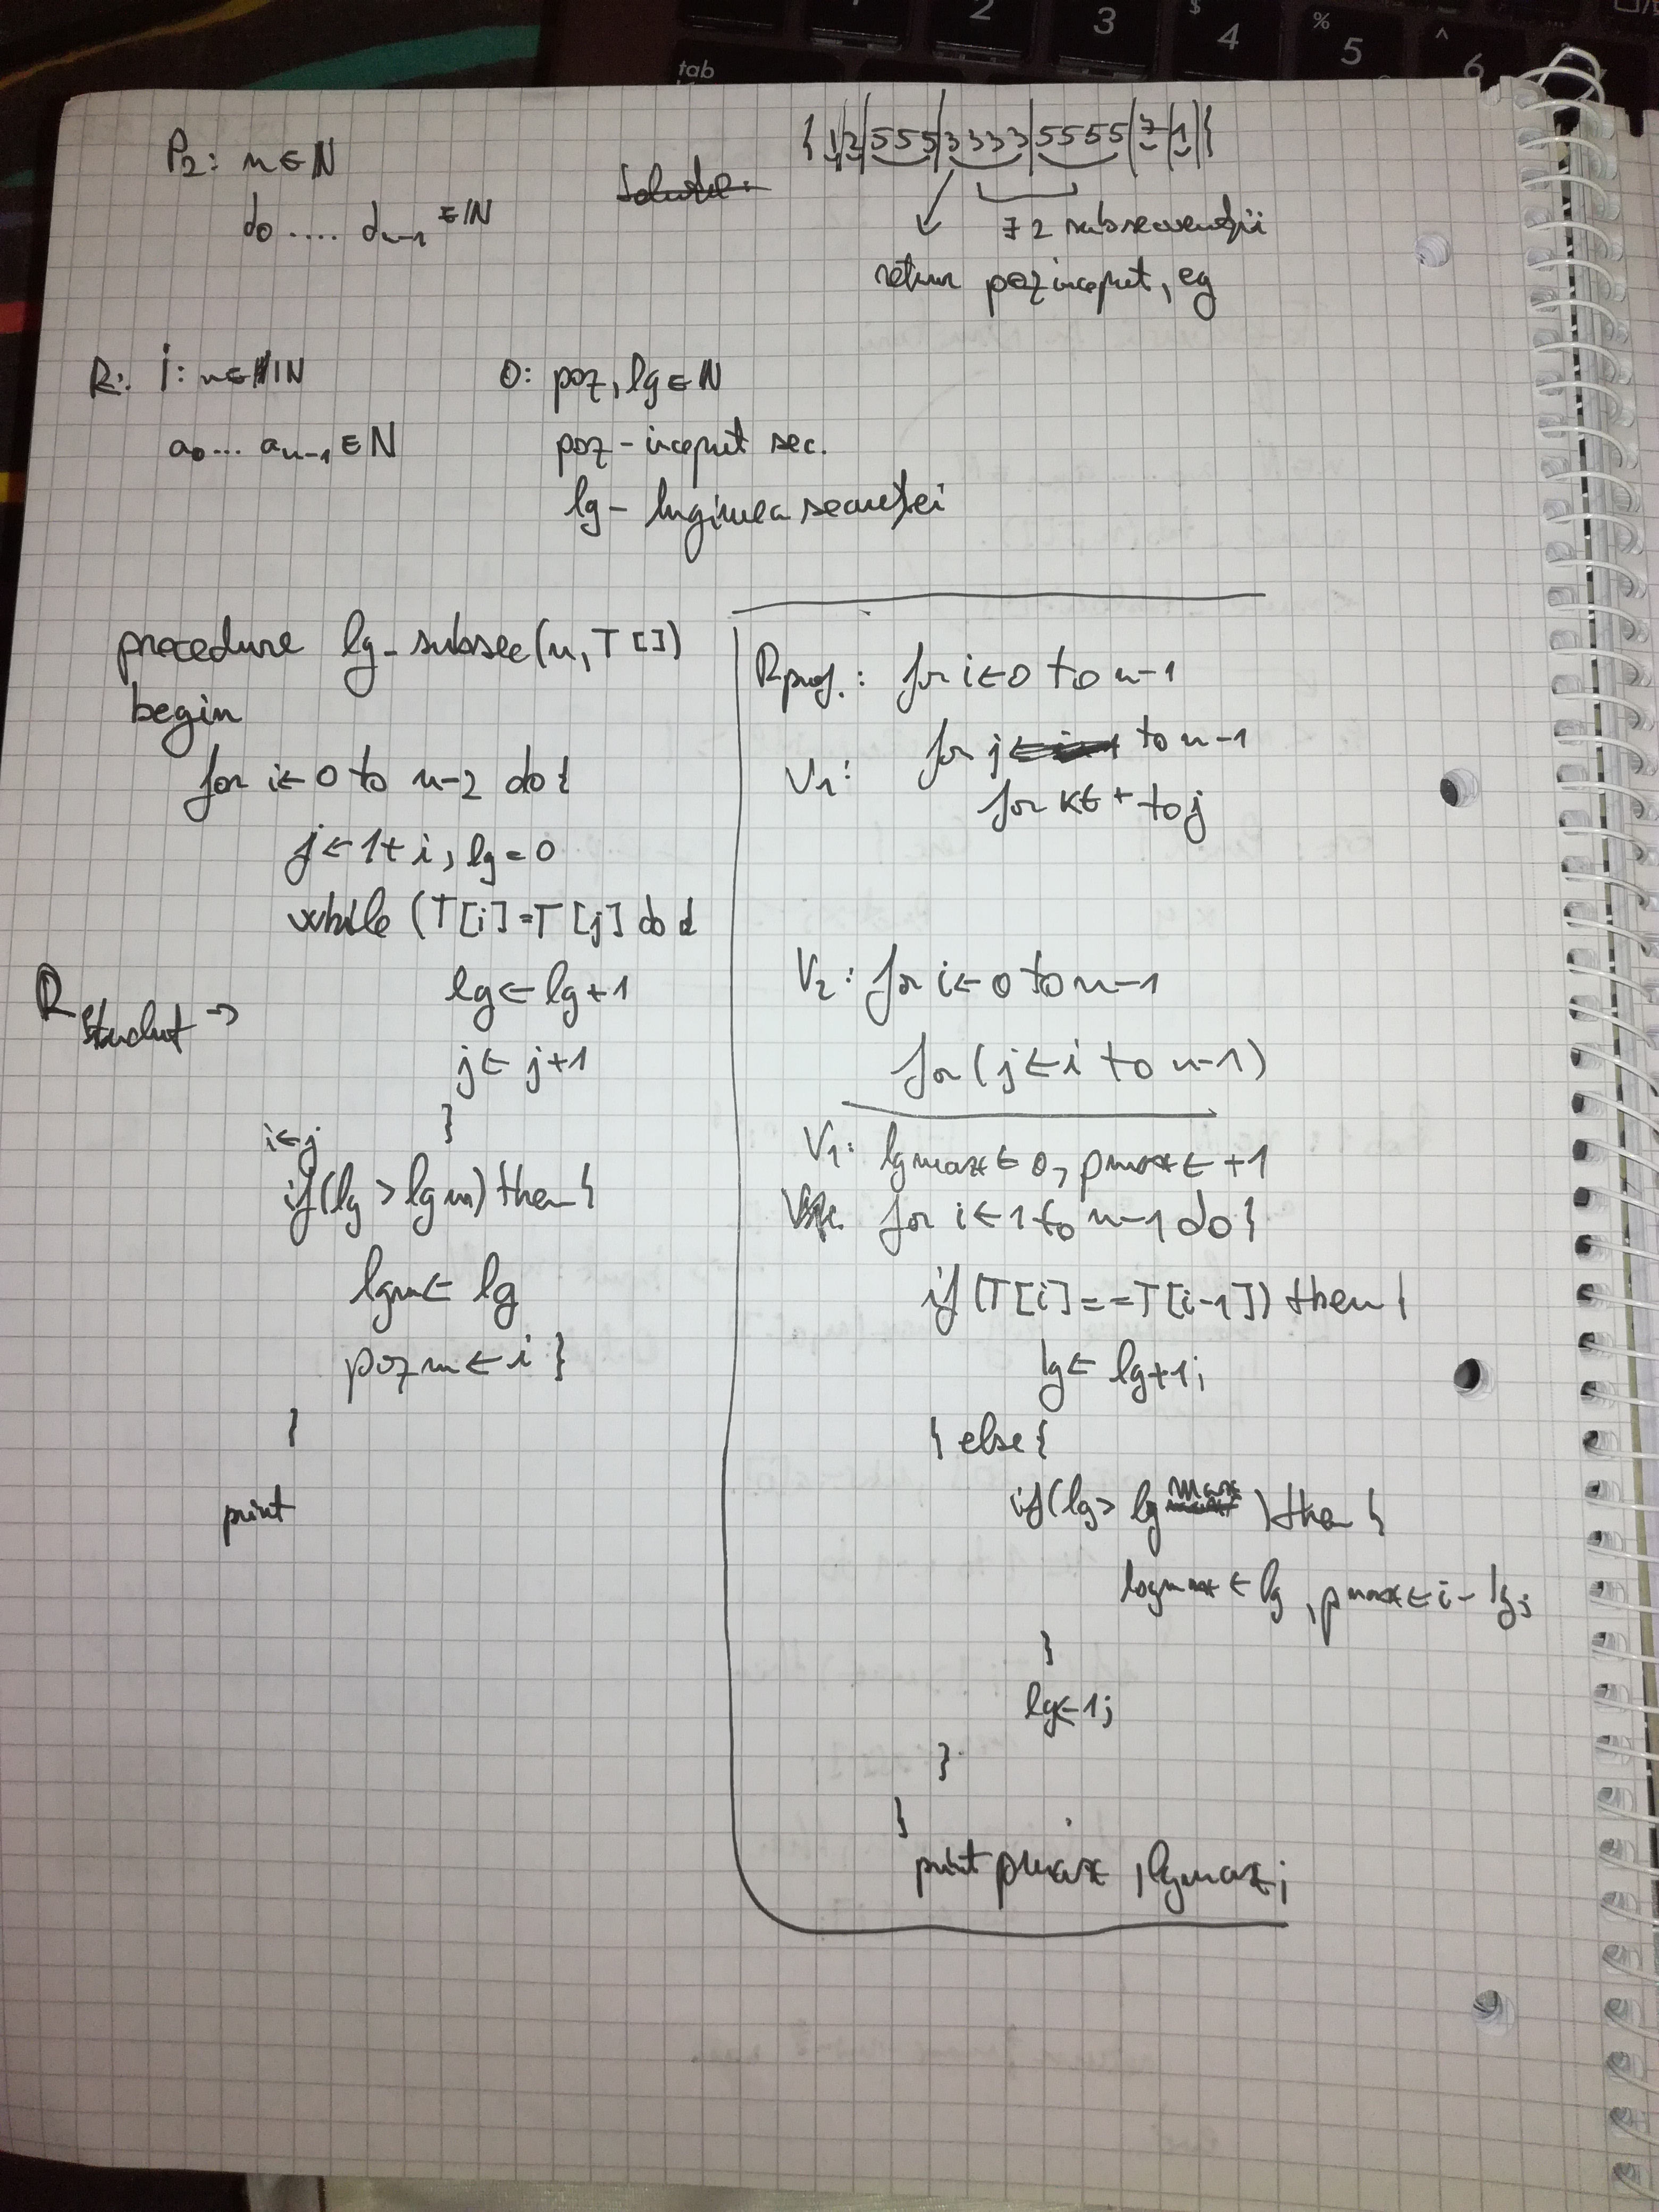 tab
2
3
$
4
%
5
^
6
P2: n ∈ N
d0 .... dn-1 ∈ IN
{ 1|2|555|3333|5555|7|1|}
7 2 subsecvenții
return poz inceput, eg
R: i: n ∈ IN
a0... an-1 ∈ N
O: poz, lg ∈ N
poz - inceput sec.
lg - lugimea secvenței
procedure lg_subsec(n, T[])
begin
for i ← 0 to n-2 do {
j ← 1+i, lg = 0
while (T[i]=T[j] do {
lg ← lg+1
j ← j+1
}
R student →
i ← j
if(lg > lgm) then {
lgm ← lg
pozm ← i }
}
print
R prof.: for i ← 0 to n-1
V1: for j ← to n-1
for k ← + to j
V2: for i ← 0 to n-1
for (j ← i to n-1)
V1: lgmax ← 0, pmax ← +1
for i ← 1 to n-1 do {
if (T[i]==T[i-1]) then {
lg ← lg+1;
} else {
if(lg > lgmax) then {
lgmax ← lg, pmax ← i - lg;
}
lg ← 1;
}
}
print pmax, lgmax;